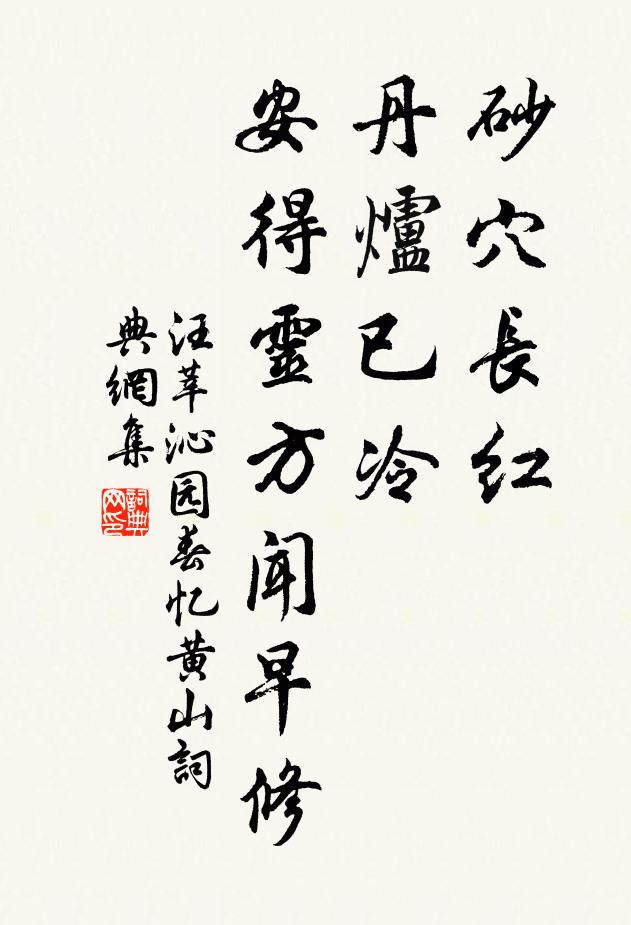 砂穴長红
丹爐已冷
安得靈方聞早修
汪莘沁园春忆黄山詞
典網集
詞典网印